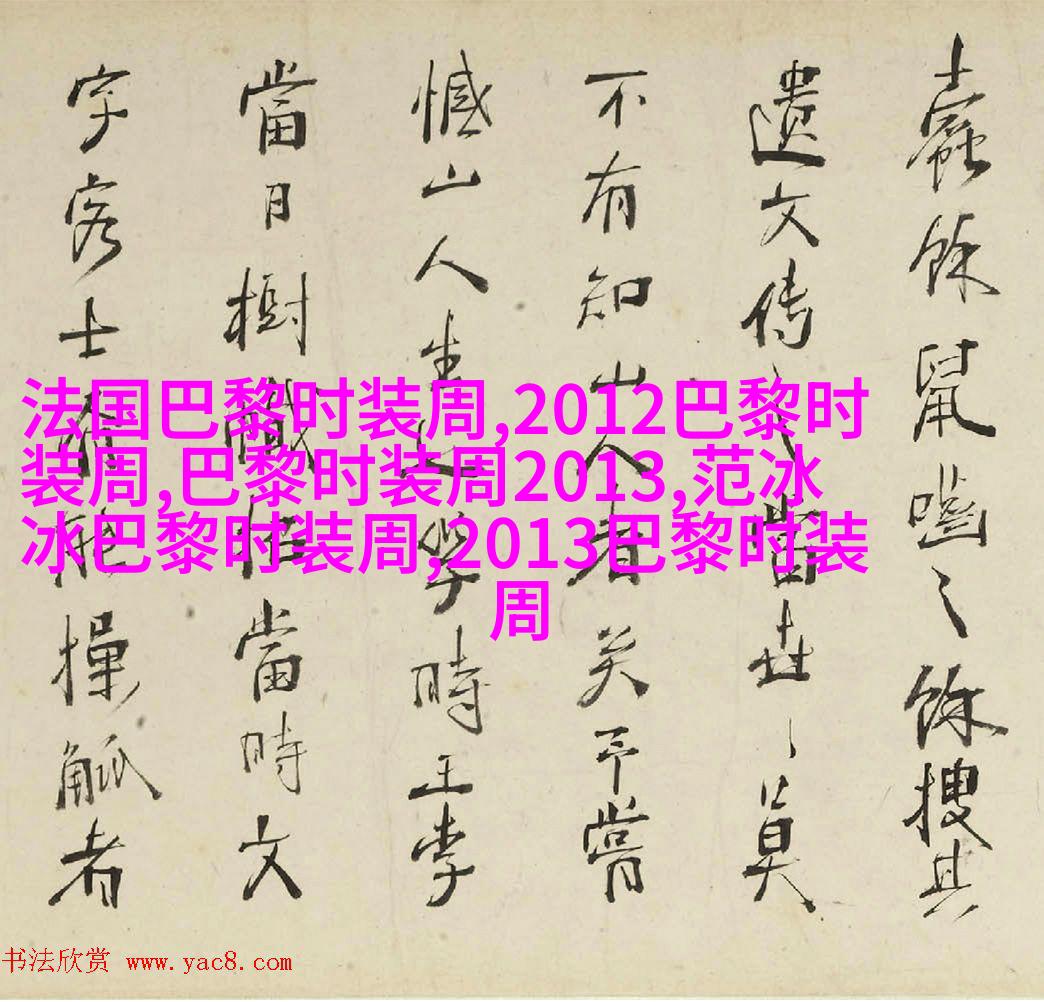 蠹餘鼠嚙之餘搜其
遺文傳之當世〻莫
不有知山人者矣予嘗
憾山人生造學時王李
當日樹幟當時文
字客士能操觚者
法国巴黎时装周,2012巴黎时
装周,巴黎时装周2013,范冰
冰巴黎时装周,2013巴黎时装
周
书法欣赏 www.yac8.com